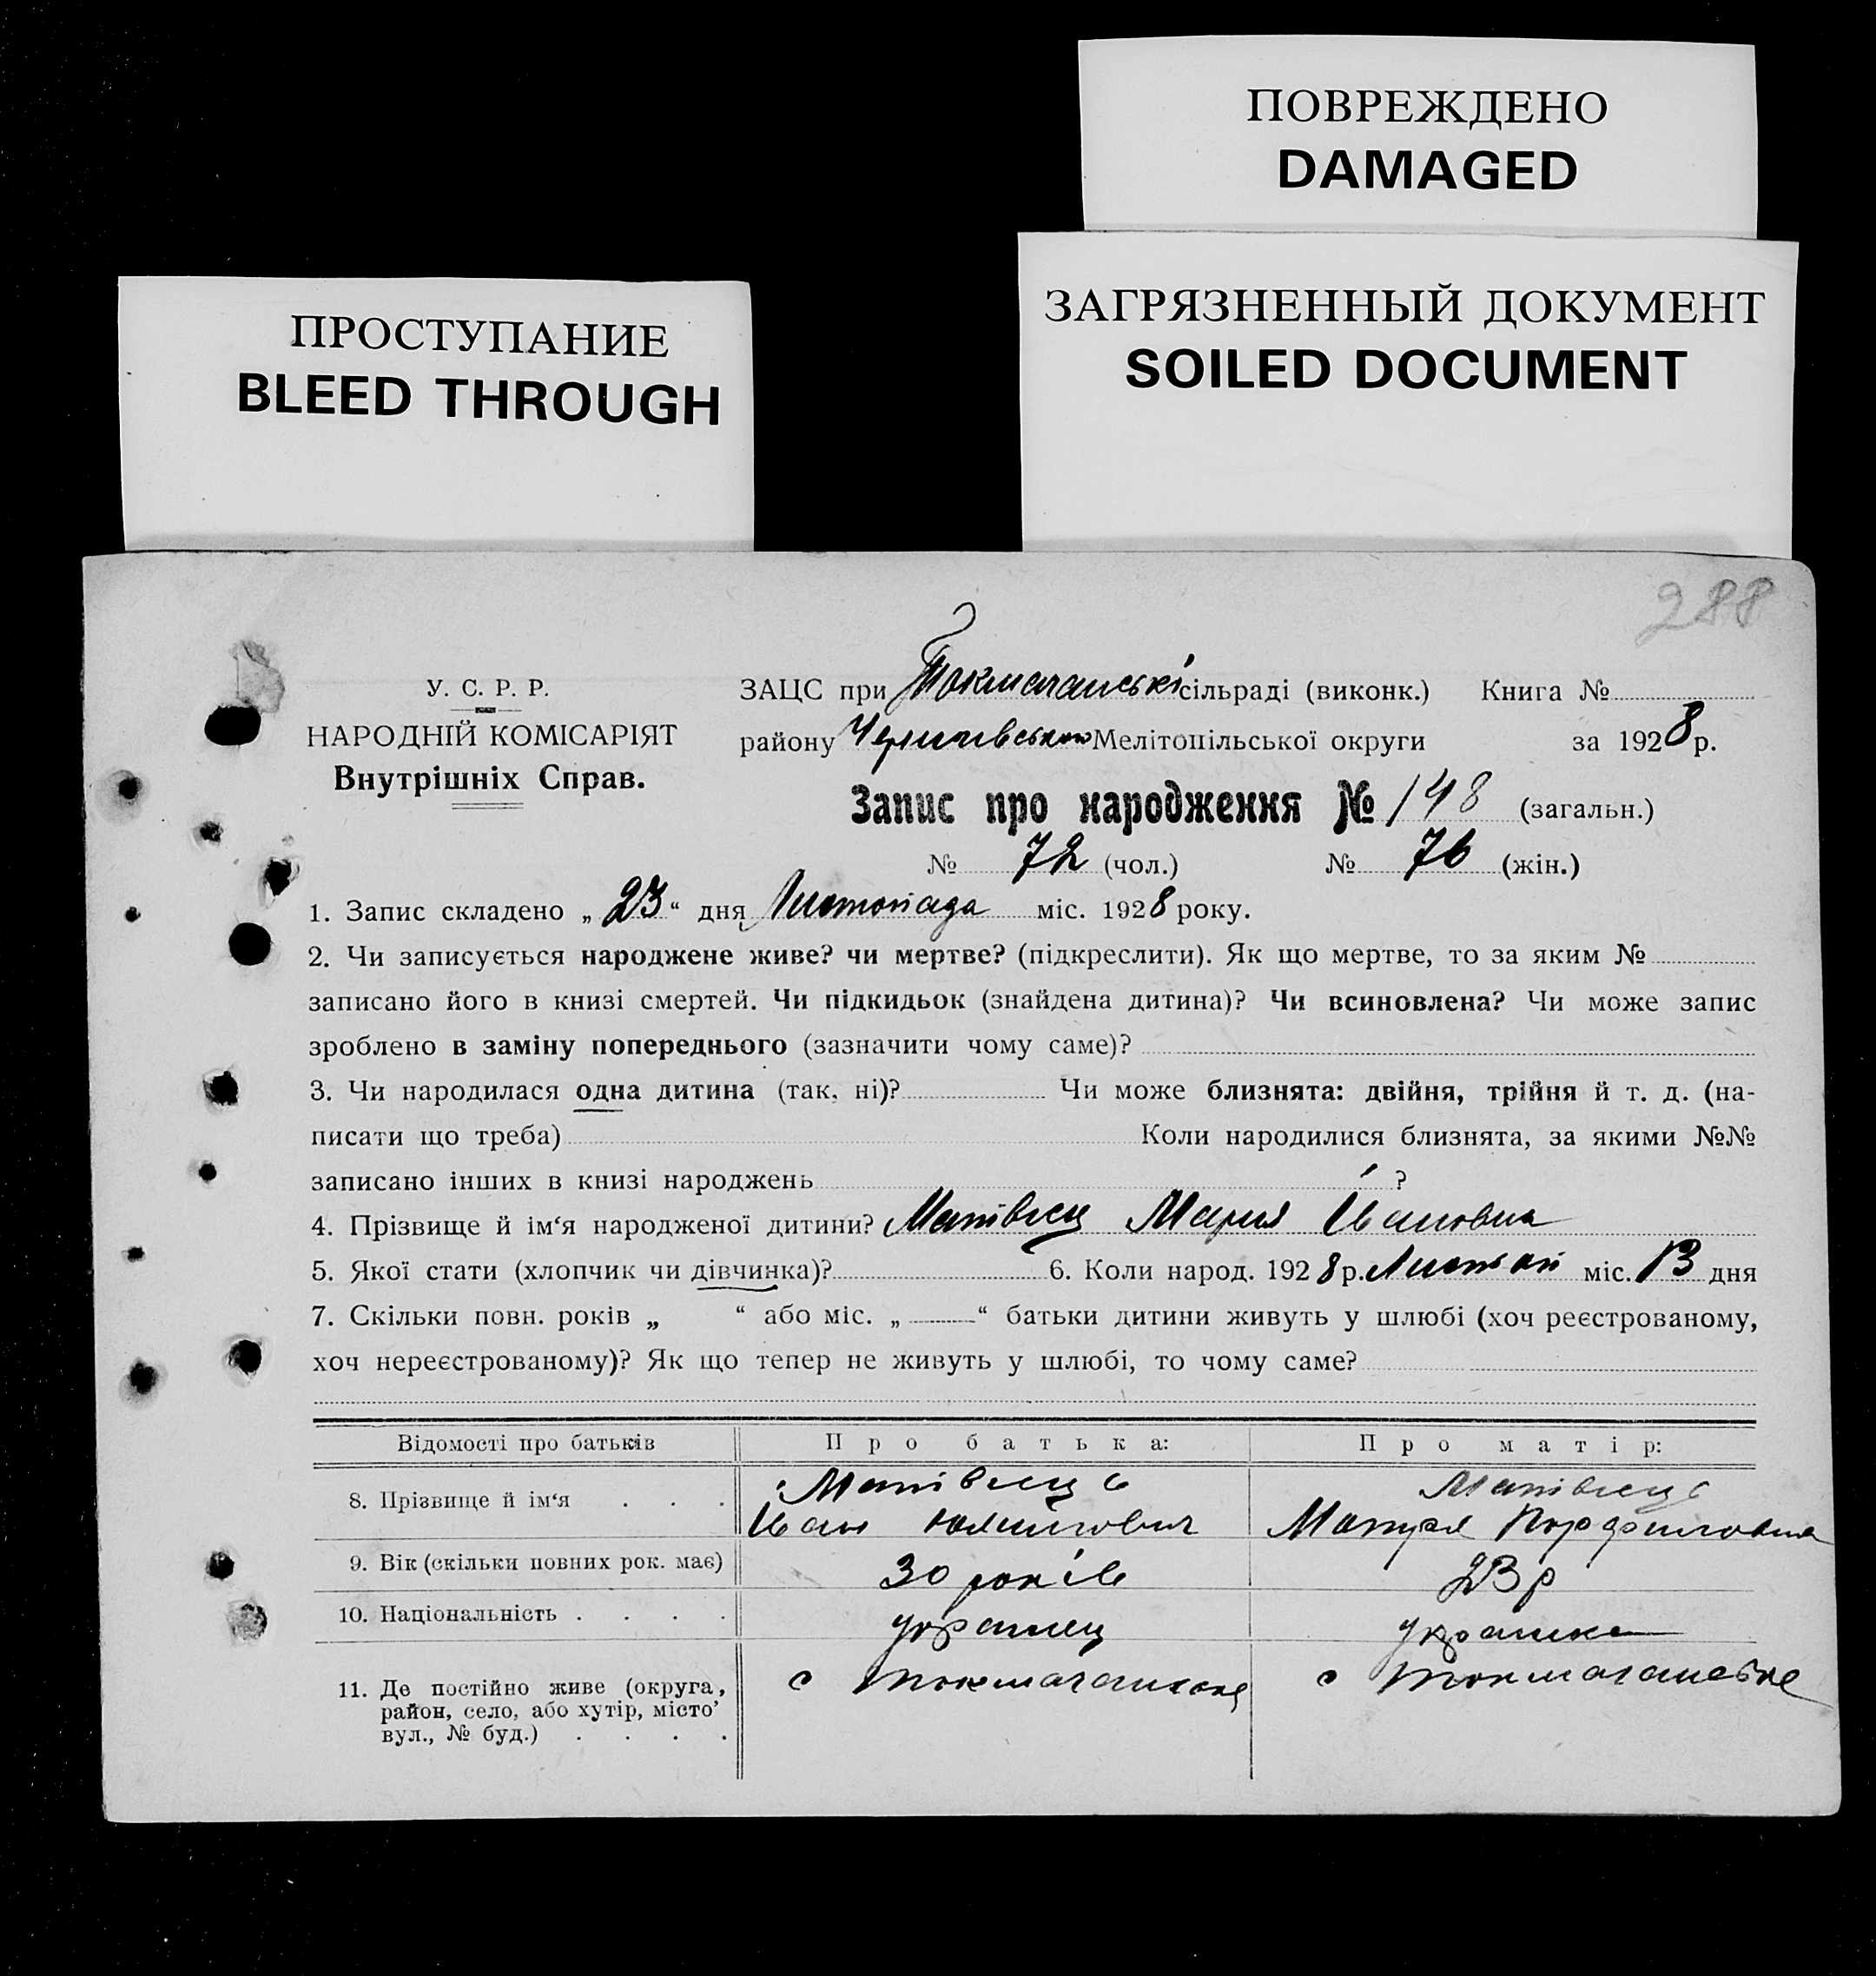 ПОВРЕЖДЕНО
DAMAGED
ЗАГРЯЗНЕННЫЙ ДОКУМЕНТ
SOILED DOCUMENT
ПРОСТУПАНИЕ
BLEED THROUGH
288
У. С. Р. Р.
НАРОДНІЙ КОМІСАРІЯТ
Внутрішніх Справ.
ЗАЦС при Токмачанській сільраді (виконк.) Книга №
району Мелітопільської округи за 1928 р.
Запис про народження № 148 (загальн.)
№ 72 (чол.) № 76 (жін.)
1. Запис складено „ 23 “ дня Листопада міс. 1928 року.
2. Чи записується народжене живе? чи мертве? (підкреслити). Як що мертве, то за яким №
записано його в книзі смертей. Чи підкидьок (знайдена дитина)? Чи всиновлена? Чи може запис
зроблено в заміну попереднього (зазначити чому саме)?
3. Чи народилася одна дитина (так, ні)? Чи може близнята: двійня, трійня й т. д. (на-
писати що треба) Коли народилися близнята, за якими №№
записано інших в книзі народжень ?
4. Прізвище й ім‘я народженої дитини? Матівец Мария Івановна
5. Якої стати (хлопчик чи дівчинка)? 6. Коли народ. 1928 р. Листопад міс. 13 дня
7. Скільки повн. років „ “ або міс. „ “ батьки дитини живуть у шлюбі (хоч реєстрованому,
хоч нереєстрованому)? Як що тепер не живуть у шлюбі, то чому саме?
Відомості про батьків Про батька: Про матір:
8. Прізвище й ім‘я . . . Матівець Матівець
Іван Порфиловна
9. Вік (скільки повних рок. має) 30 років 23 р
10. Національність . . . . українец українка
11. Де постійно живе (округа, с Токмачанське с Токмачанське
район, село, або хутір, місто’
вул., № буд.) . . . .